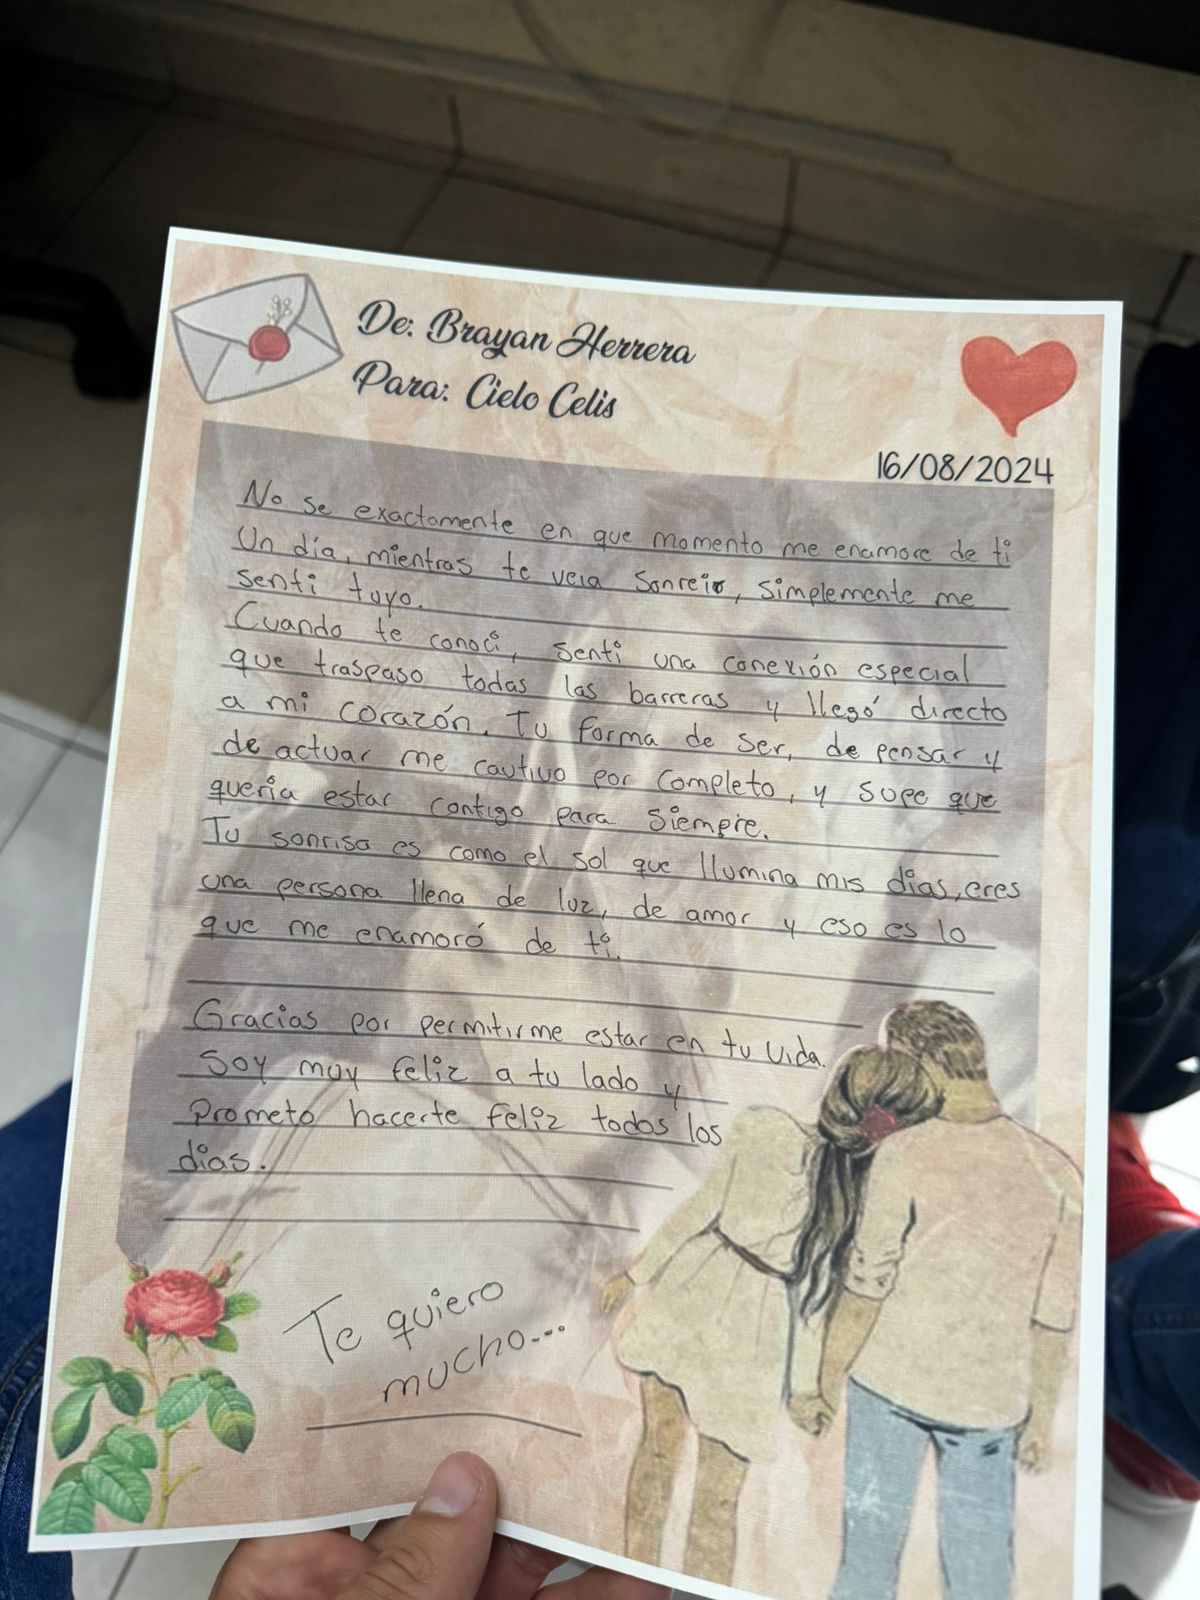 De: Brayan Herrera
Para: Cielo Celis
16/08/2024
No se exactamente en que momento me enamore de ti
Un día, mientras te veia sonreir, simplemente me
senti tuyo.
Cuando te conoci, senti una conexión especial
que traspaso todas las barreras y llegó directo
a mi corazón. Tu forma de ser, de pensar y
de actuar me cautivo por completo, y supe que
queria estar contigo para siempre.
Tu sonrisa es como el sol que Ilumina mis dias, eres
una persona llena de luz, de amor y eso es lo
que me enamoró de ti.
Gracias por permitirme estar en tu vida.
Soy muy feliz a tu lado y
Prometo hacerte feliz todos los
dias.
Te quiero
mucho...